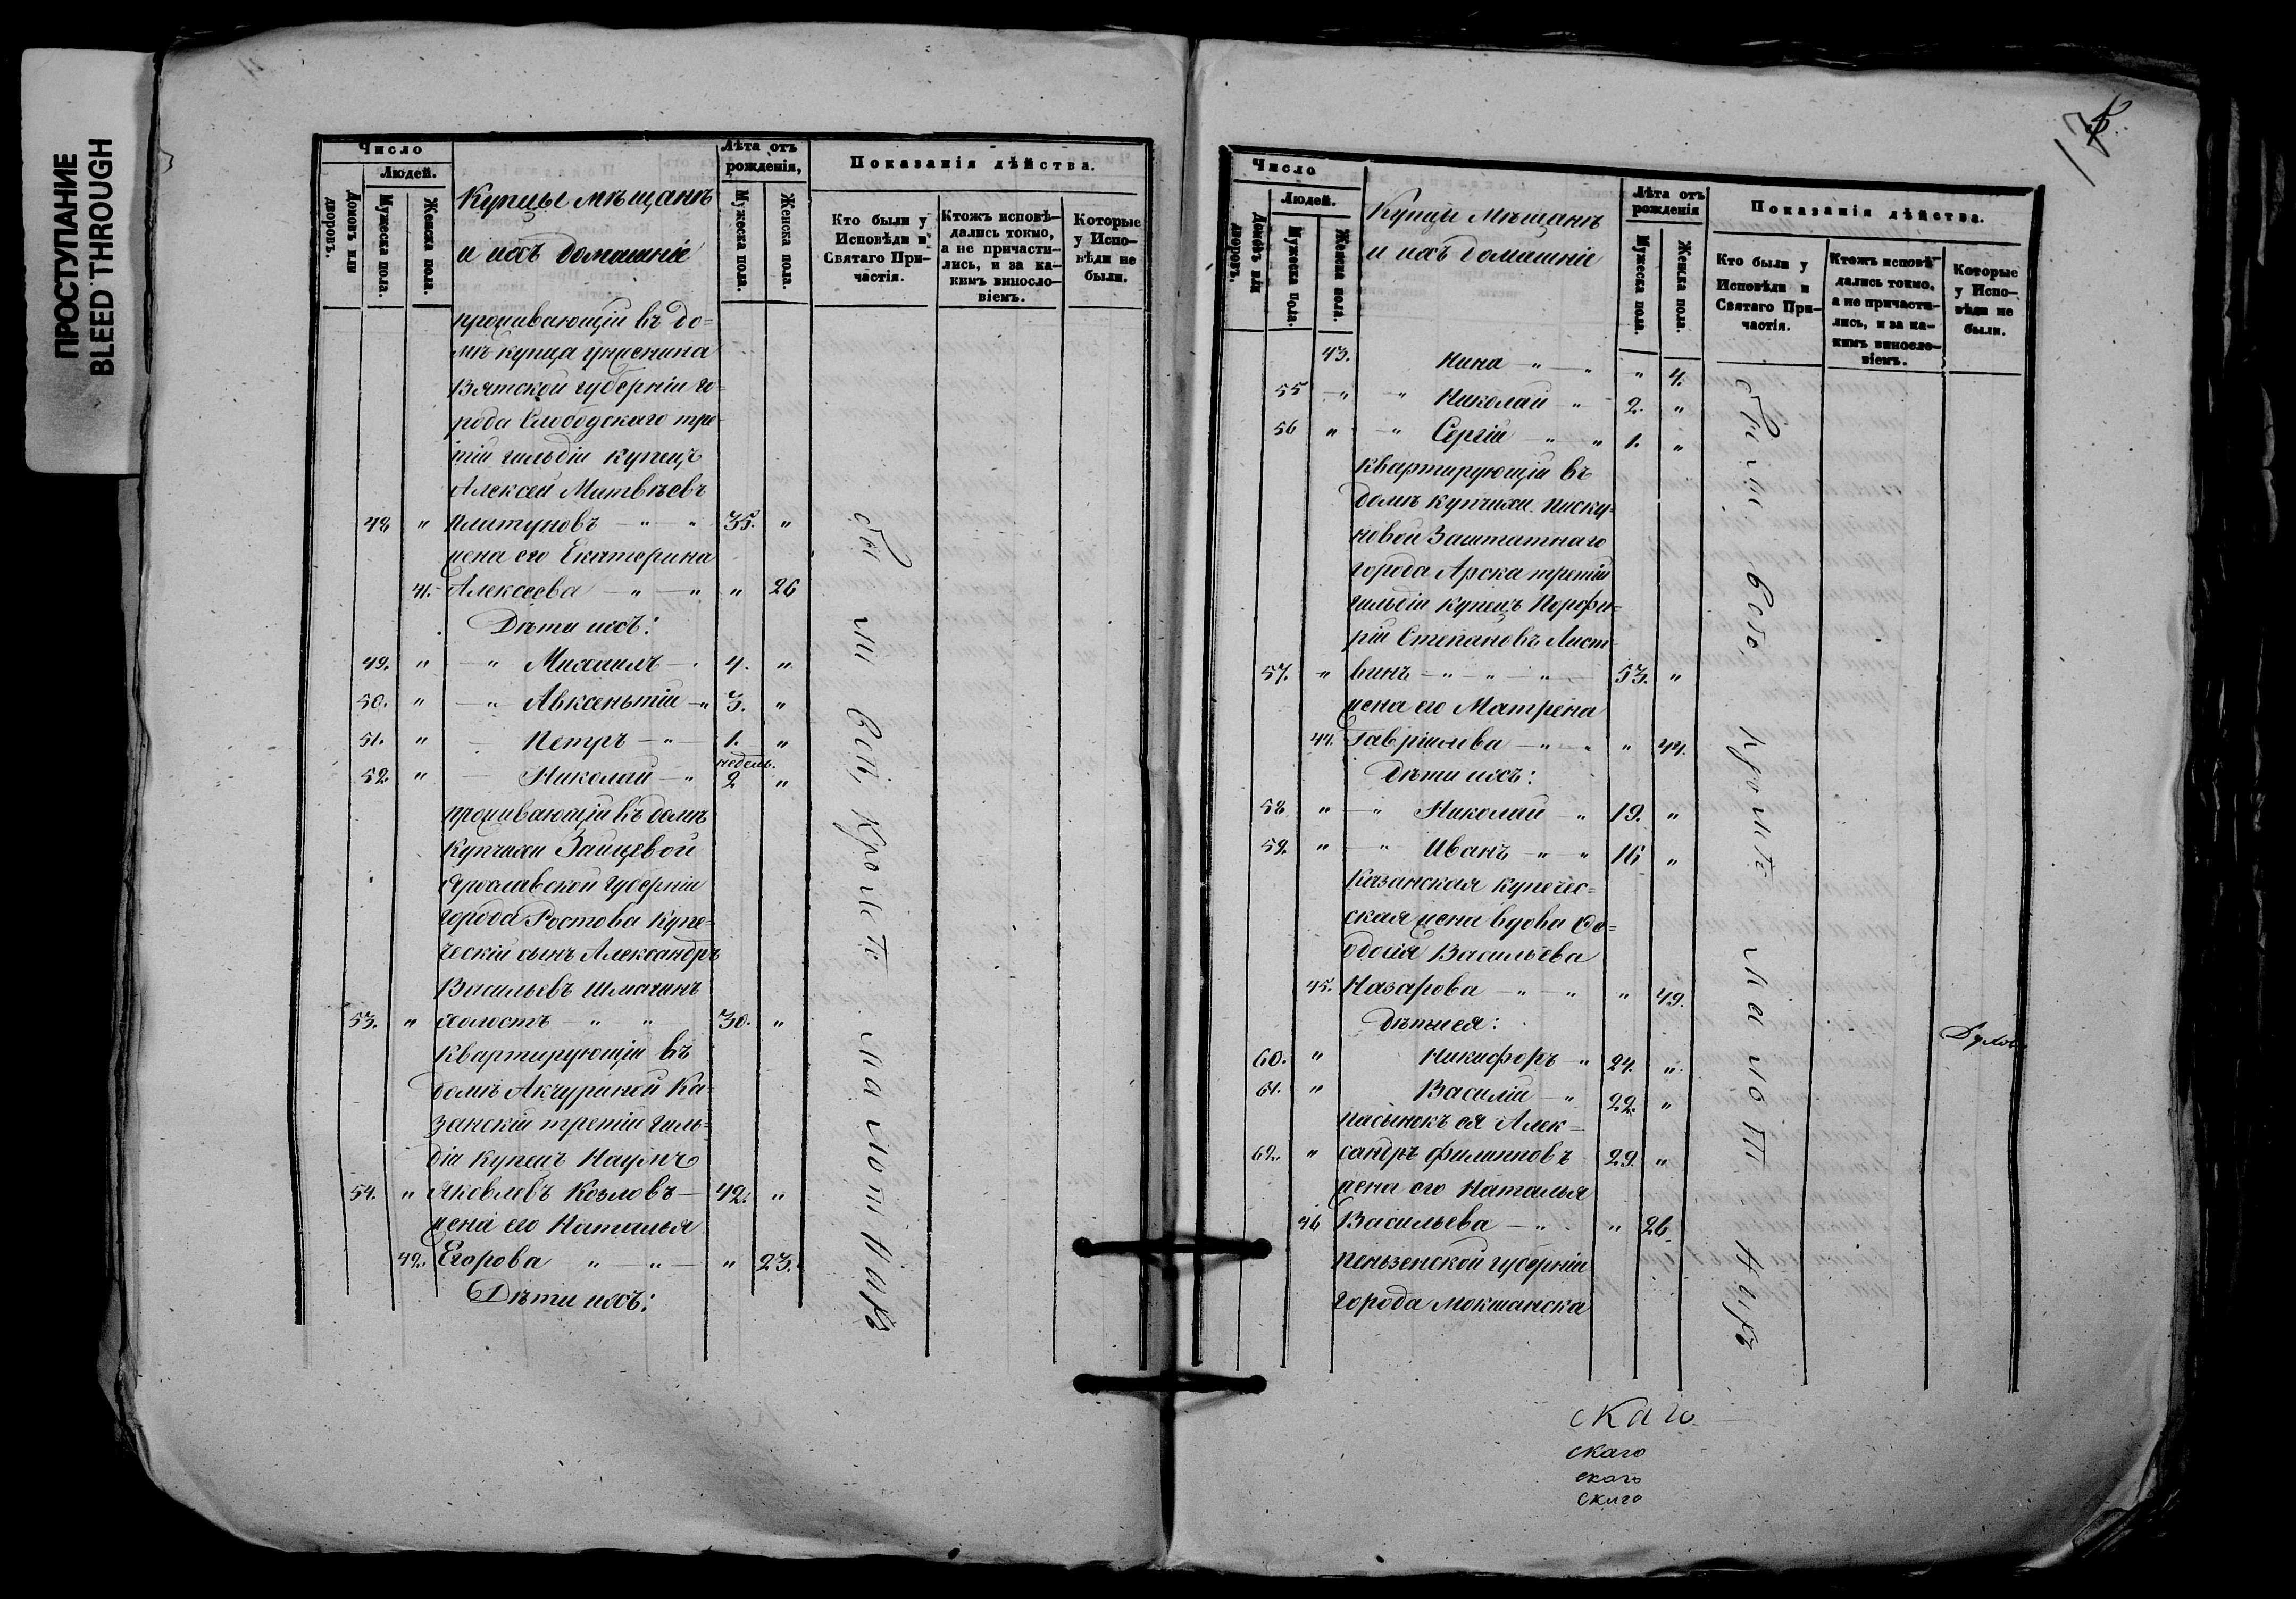 ПРОСТУПАНИЕ
BLEED THROUGH
Число
Людей.
Домовъ или дворовъ.
Мужеска пола.
Женска пола.
Купцы мѣщанѣ
и ихъ домашніе
Лѣта отъ рожденія,
Мужеска пола.
Женска пола.
Показанія дѣйства.
Кто были у Исповѣди и Святаго Причастія.
Ктожъ исповѣдались токмо, а не причастились, и за какимъ винословіемъ.
Которые у Исповѣди не были.
проживающій въ до=
мѣ купца
Вятской губерніи го=
рода Слободскаго тре=
тій гильдіи купецъ
Алексей Матвѣевъ
48 " Плитуновъ — " — " 35. "
жена его Екатерина
41. Алексеева — " — " " 26
Дѣти ихъ:
49. " — " Михаилъ — " 4. "
50. " — " Авксентій — " 3. "
51. " — Петръ — " — 1. "
недель.
52 " — Николай — " 2 "
проживающій въ домѣ
купчихи Зайцевой
Ярославской губерніи
города Ростова купе=
ческій сынъ Александръ
Васильевъ Шмагинъ
53. " холостъ — " — " 30. "
квартирующій въ
домѣ Акчуриной Ка=
занскій третій гиль=
діи купецъ Наумъ
54. " Яковлевъ Козловъ — 42. "
жена его Наталья
42. Егорова — " — " — " 23.
Дѣти ихъ:
были всѣ, кромѣ малолѣтнихъ
Число
Людей.
Домовъ или дворовъ.
Мужеска пола.
Женска пола.
Купцы мѣщанѣ
и ихъ домашніе
Лѣта отъ рожденія
Мужеска пола.
Женска пола.
Показанія дѣйства.
Кто были у Исповѣди и Святаго Причастія.
Ктожъ исповѣдались токмо, а не причастились, и за какимъ винословіемъ.
Которые у Исповѣди не были.
43. Нина — " — " " 4.
55 " — " Николай — " 2. "
56 " — " Сергій — " — " 1. "
квартирующій въ
домѣ купчихи Писку=
новой Заштатнаго
города Арска третій
гильдіи купецъ Порфи=
рій Степановъ Лист=
57. " винъ — " — " — " 53. "
жена его Матрена
44. Гавріилова — " — " " 44.
Дѣти ихъ:
58 " — " Николай — " 19. "
59. " — " Иванъ — " — " 16 "
Казанская купечес=
ская жена вдова Фе=
одосія Васильева
45. Назарова — " — " " 49.
Дѣти ея:
60. " Никифоръ — " 24. "
61. " Василій — " 22. "
пасынокъ ея Алек=
62. " сандръ Филипповъ 29. "
жена его Наталья
46 Васильева — " " 26.
Пензенской губерніи
города Мокшанска
были всѣ кромѣ малолѣтнихъ
скаго
скаго
скаго
скаго